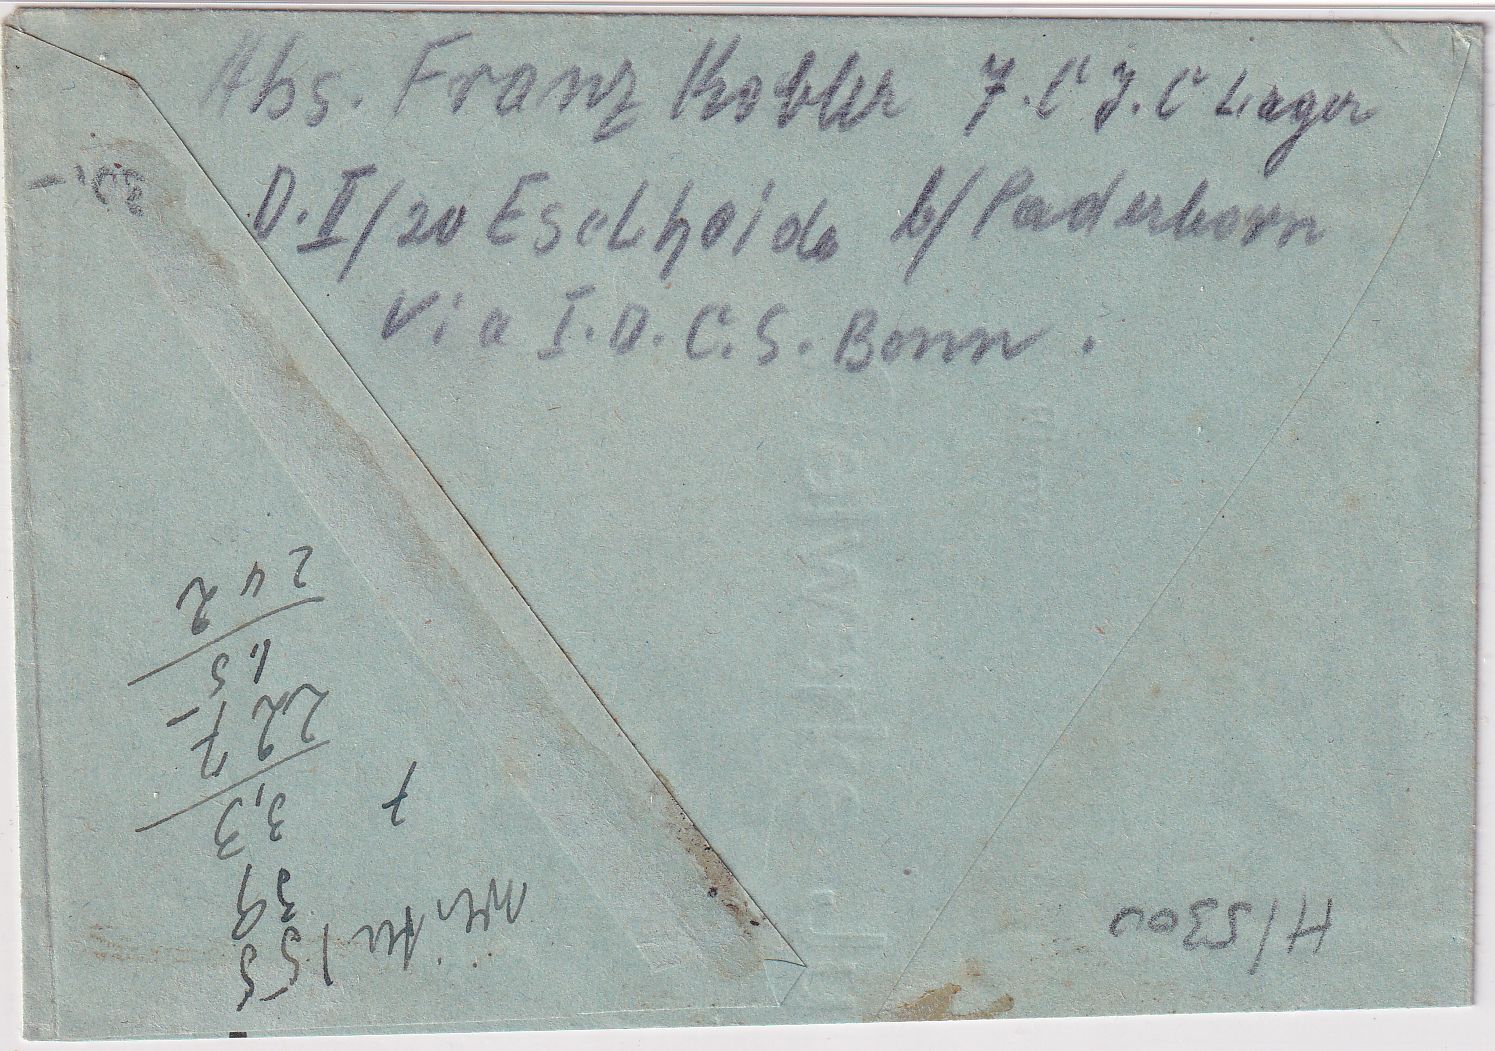 Abs. Franz Kobler 7. C J. C Lager
D. I/20 Eselheide b/ Paderborn
Via I. D. C. S. Bonn.
30,-
242
1,5
227-
3,3
39
155
7
H/5300